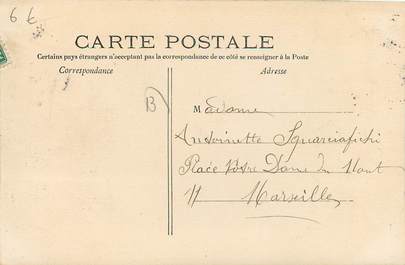 6 €
CARTE POSTALE
Certains pays étrangers n'acceptant pas la correspondance de ce côté se renseigner à la Poste
Correspondance
Adresse
B
Madame
Antoinette Squarciafichi
Place Notre Dame du Mont
11 Marseille